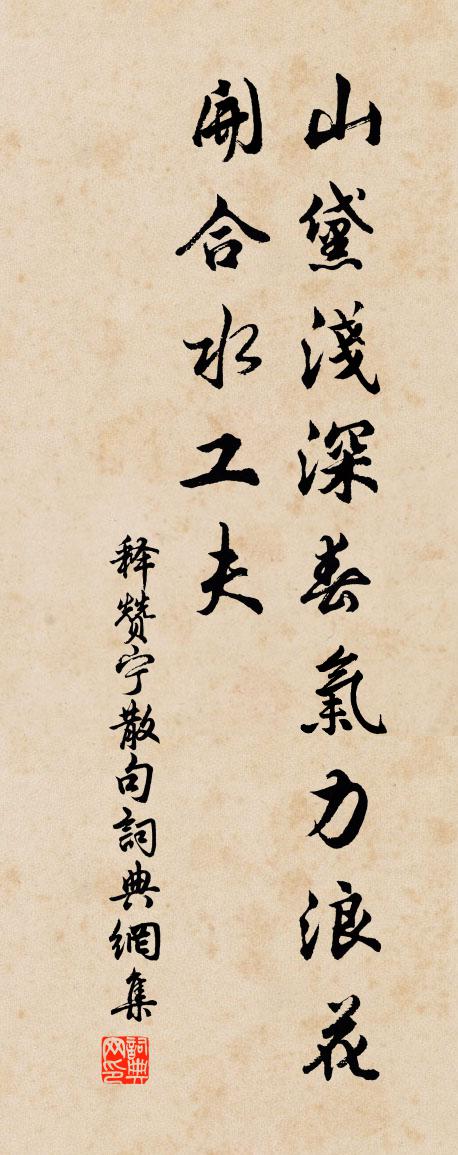 山黛淺深春氣力浪花
開合水工夫
释赞宁散句詞典網集
詞典
网印